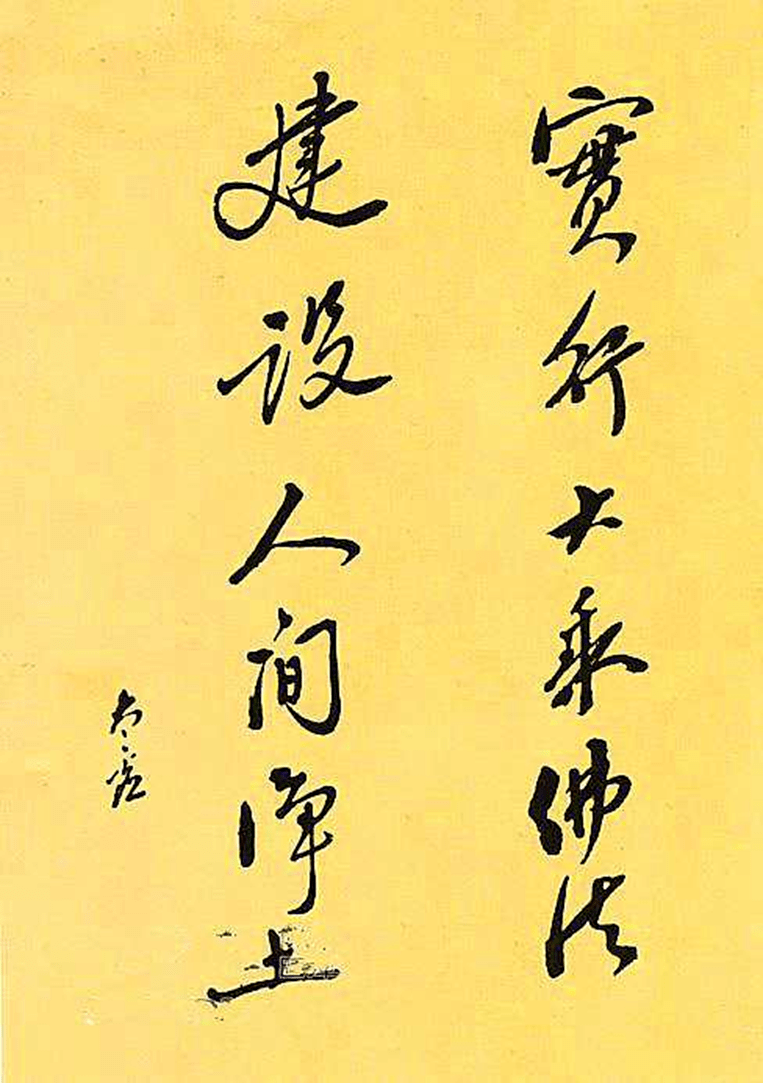 實行大乘佛法
建設人间淨土
太虛